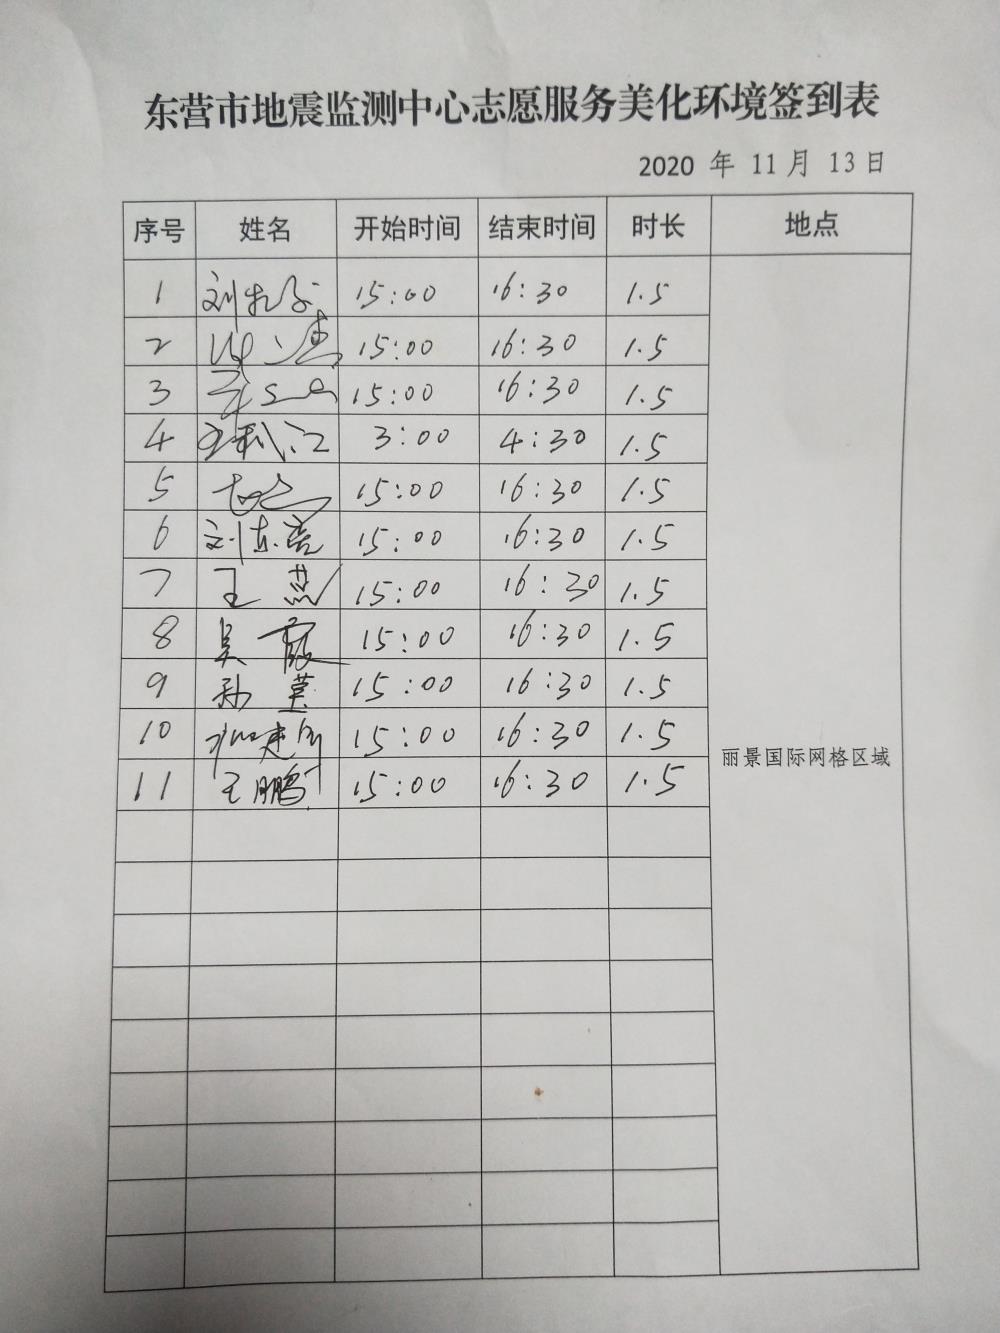 东营市地震监测中心志愿服务美化环境签到表
2020 年 11月 13日
序号 姓名 开始时间 结束时间 时长 地点
1 15:00 16:30 1.5
2 15:00 16:30 1.5
3 15:00 16:30 1.5
4 王秋江 3:00 4:30 1.5
5 15:00 16:30 1.5
6 刘东亮 15:00 16:30 1.5
7 王燕 15:00 16:30 1.5
8 吴霞 15:00 16:30 1.5
9 孙莹 15:00 16:30 1.5
10 15:00 16:30 1.5
丽景国际网格区域
11 王鹏 15:00 16:30 1.5